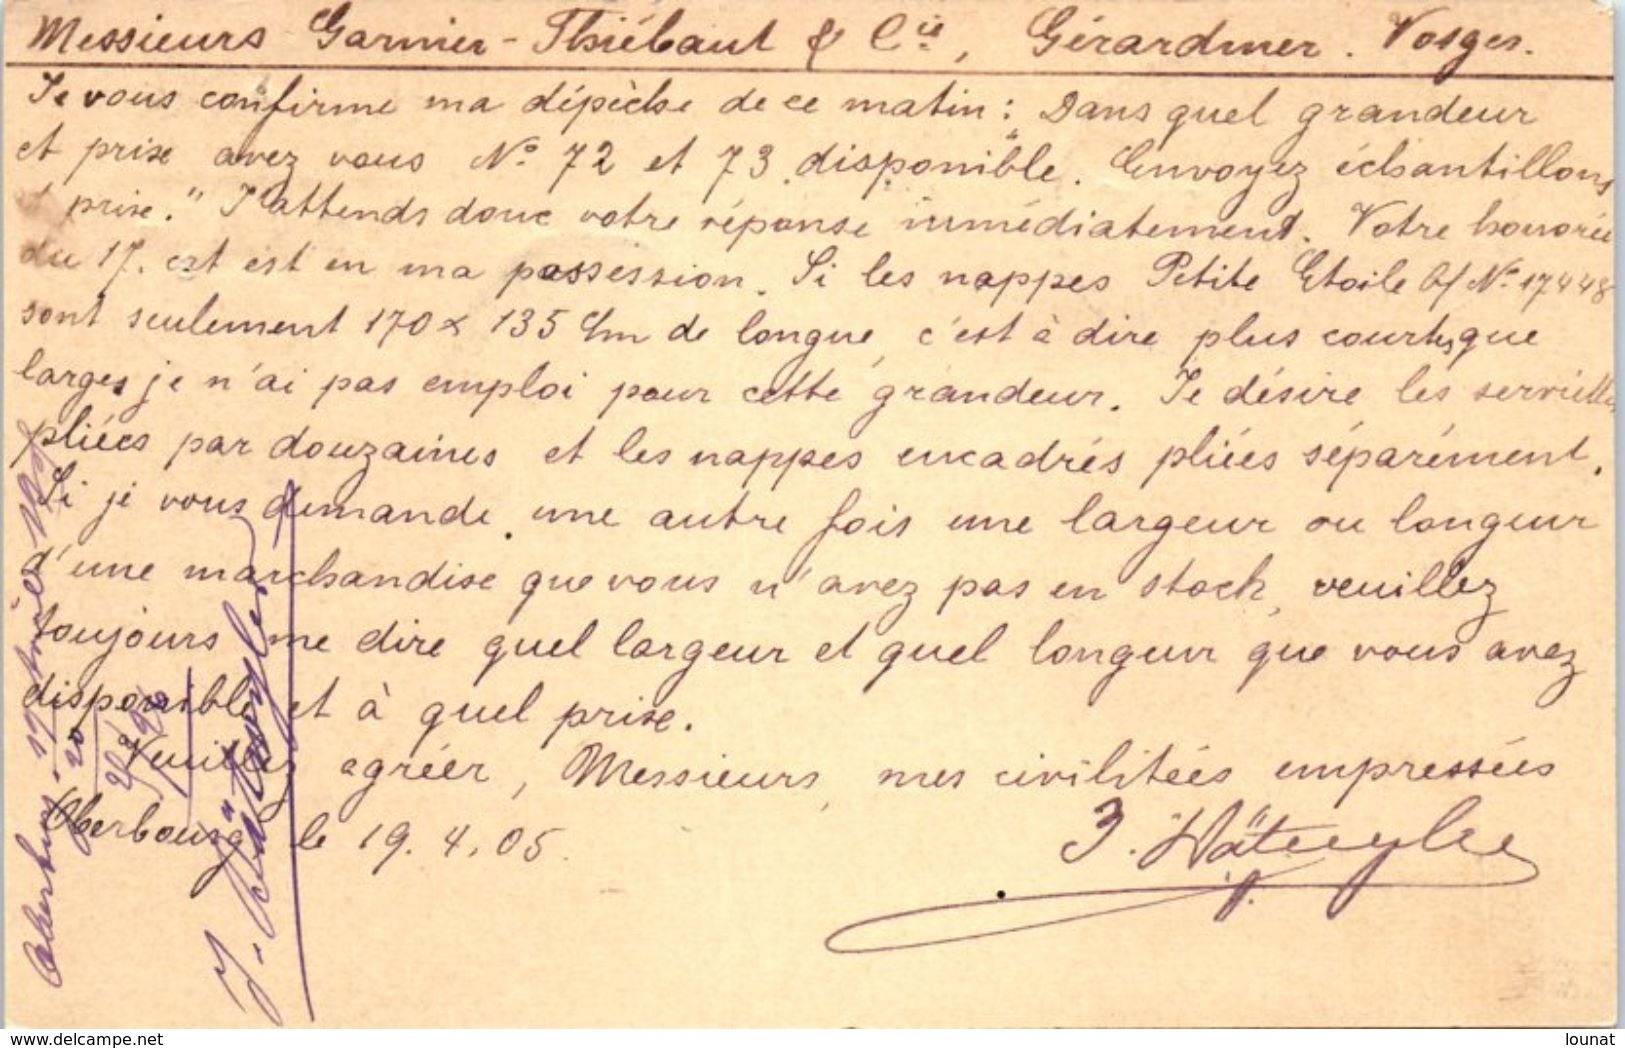 Messieurs Garnier-Thiébaut & Cie, Gérardmer. Vosges.
Je vous confirme ma dépèche de ce matin: "Dans quel grandeur
et prise avez vous No 72 et 73 disponible. Envoyez échantillons
et prise." J'attends donc votre réponse immédiatement. Votre honorée
du 17. crt est en ma possession. Si les nappes Petite Etoile No 17448
sont seulement 170 x 135 c/m de longue, c'est à dire plus courtes que
larges je n'ai pas emploi pour cette grandeur. Je désire les serviettes
pliées par douzaines et les nappes encadrés pliées séparément.
Si je vous demande une autre fois une largeur ou longeur
d'une marchandise que vous n'avez pas en stock, veuillez
toujours me dire quel largeur et quel longeur que vous avez
disponible, et à quel prise.
Veuillez agréer, Messieurs, mes civilitées empressées
Oberbourg le 19. 4. 05.
J. Wätterich
delcampe.net
lounat